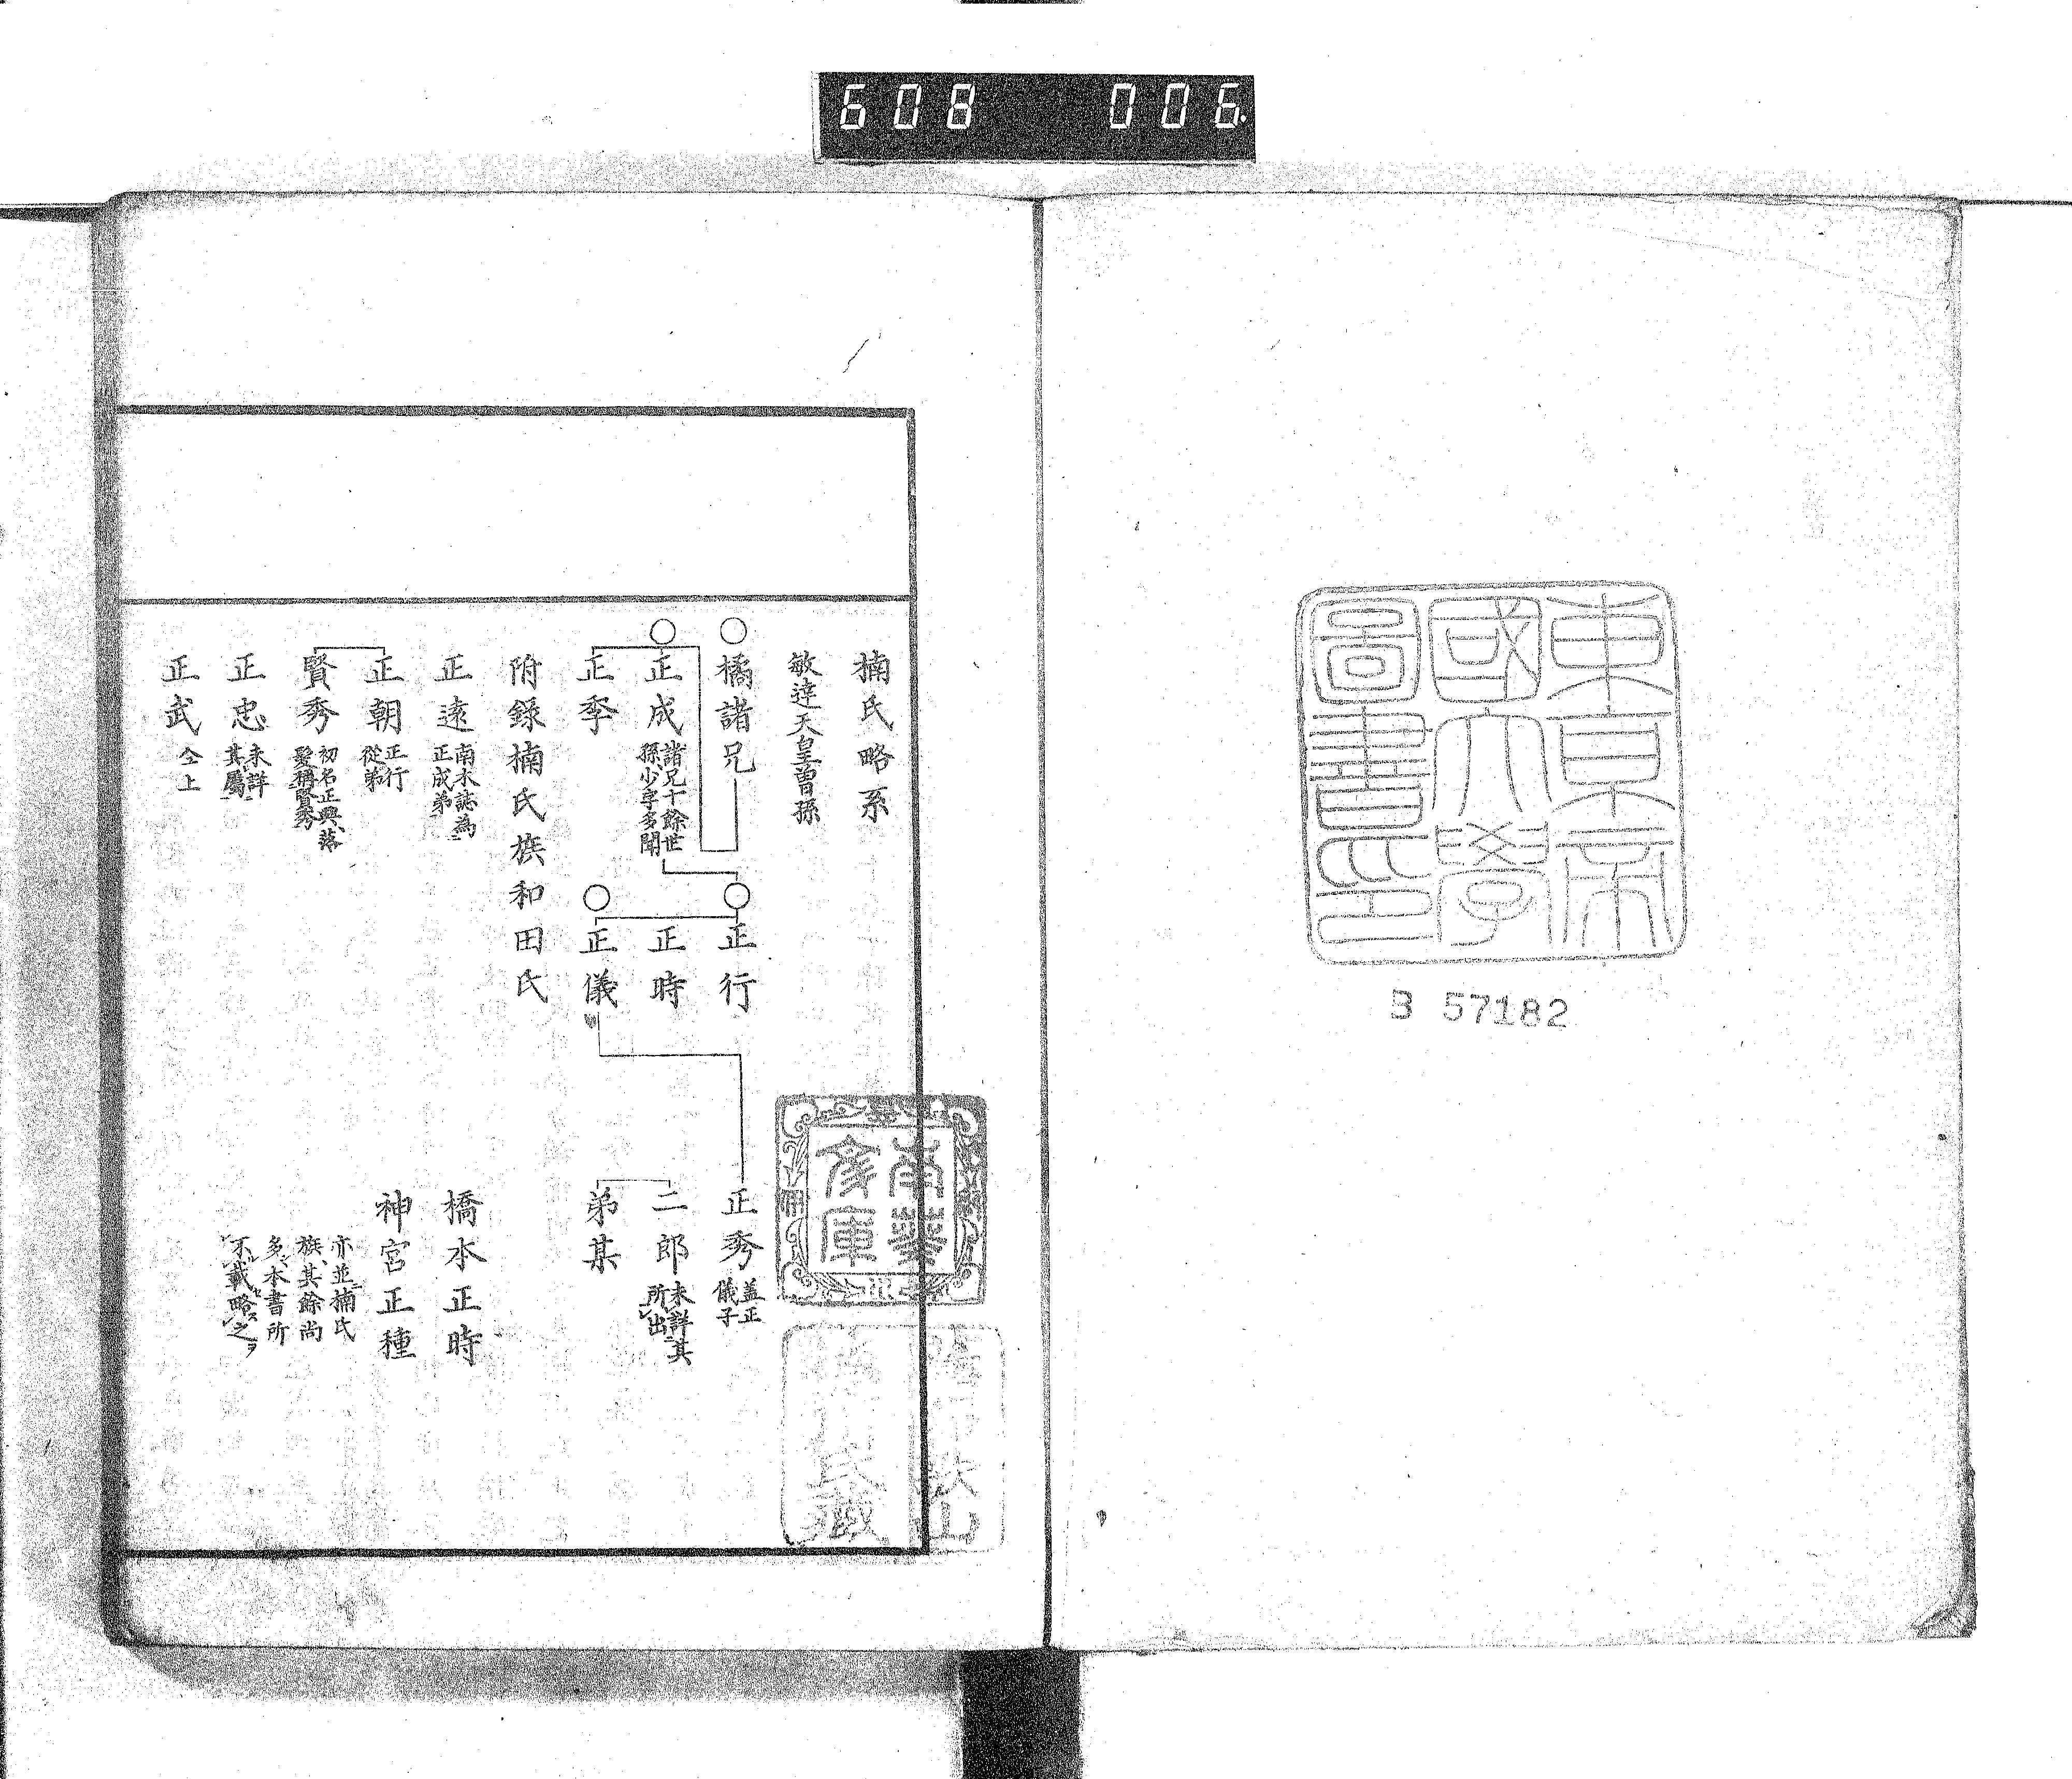 608 006.
東京帝
國大學
圖書印
B 57182
楠氏略系
敏達天皇曽孫
橘諸兄
正成 諸兄十餘世
孫、少字多聞
正季
正行
正時
正儀
正秀 蓋正
儀子
二郎 未詳其
所出
弟某
附録楠氏族和田氏
正遠 南木誌為
正成弟
正朝 正行
從弟
賢秀 初名正興、落
髮稱賢秀
正忠 未詳
其屬
正武 仝上
橋本正時
神宮正種
亦並楠氏
族、其餘尚
多、本書所
不載略之
南葵
文庫
山
氏藏